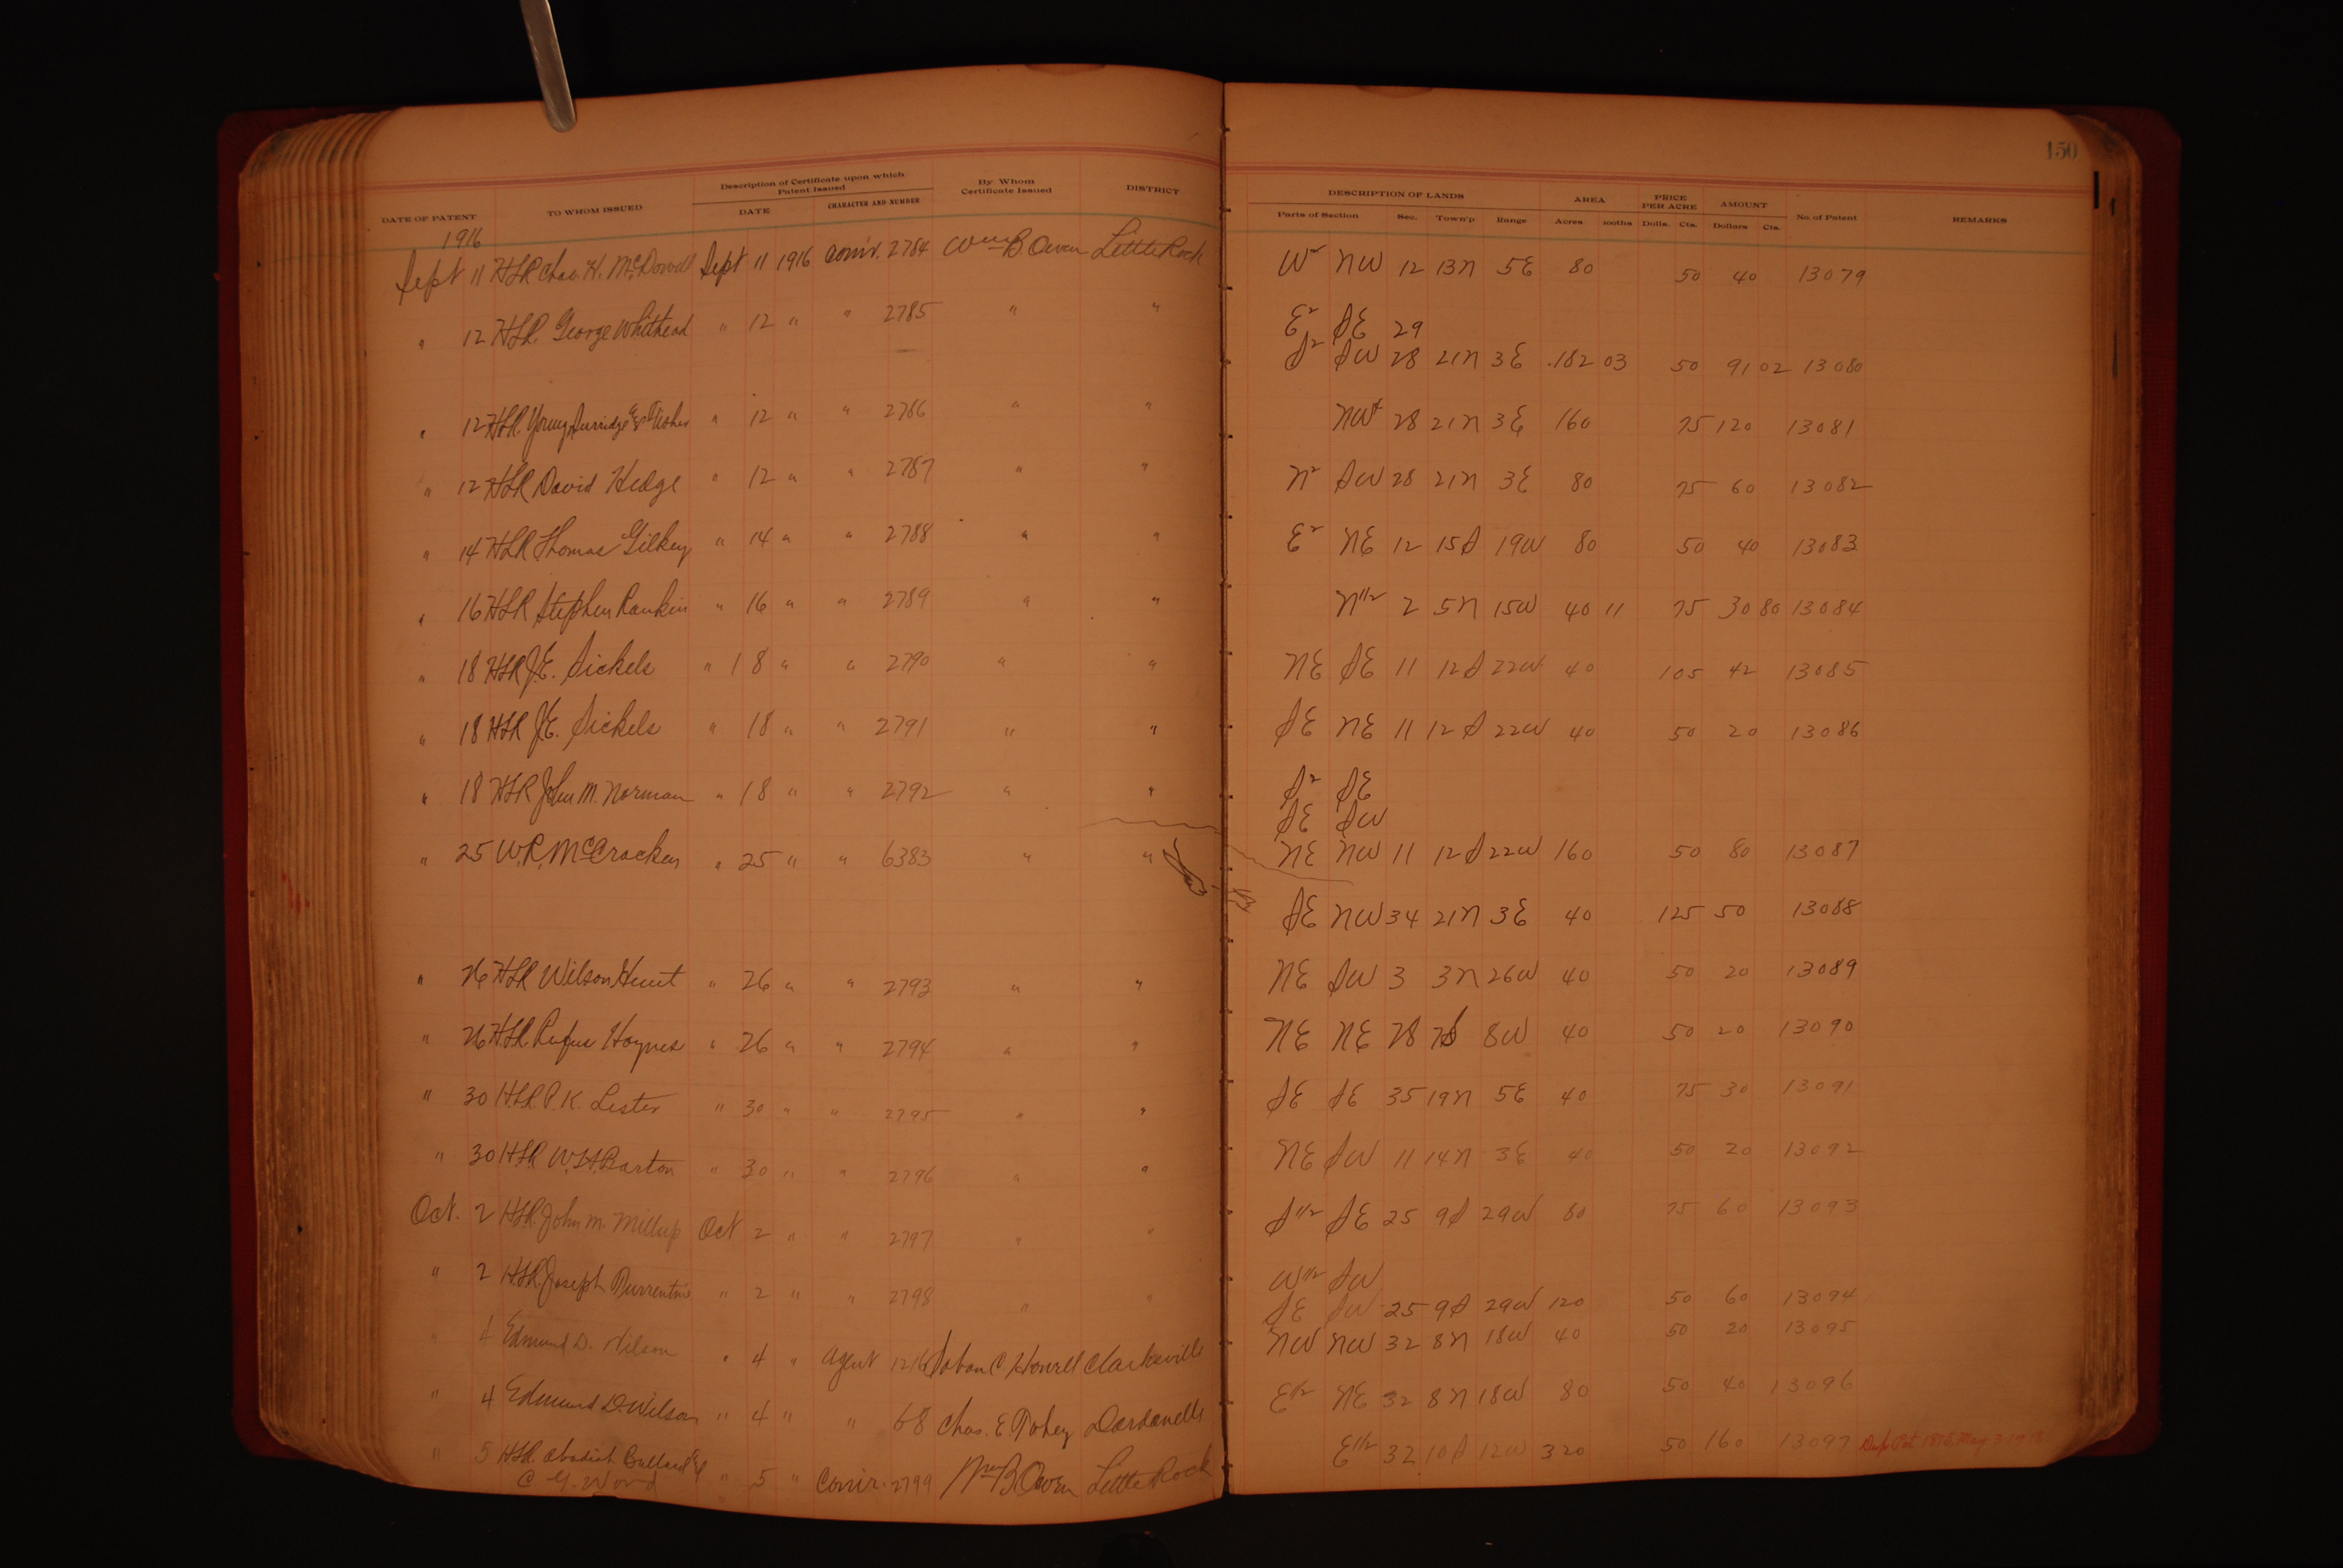 150
DATE OF PATENT TO WHOM ISSUED Description of Certificate upon which Patent Issued DATE CHARACTER AND NUMBER By Whom Certificate Issued DISTRICT DESCRIPTION OF LANDS Parts of Section Sec. Town'p Range AREA Acres 100ths PRICE PER ACRE Dolls. Cts. AMOUNT Dollars Cts. No. of Patent REMARKS
1916
Sept 11 HLR Chas. H. McDowell Sept 11 1916 Com'r. 2784 Wm B. Owen Little Rock W2 NW 12 13N 5E 80 50 40 13079
" 12 HLR. George Whithead " 12 " " 2785 " " E2 SE 29
S2 SW 28 21N 3E 182 03 50 91 02 13080
" 12 HLR. Young " 12 " " 2786 " " NW4 28 21N 3E 160 75 120 13081
" 12 HLR David Hedge " 12 " " 2787 " " N2 SW 28 21N 3E 80 75 60 13082
" 14 HLR Thomas Gilkey " 14 " " 2788 " " E2 NE 12 15S 19W 80 50 40 13083
" 16 HLR Stephen Rankin " 16 " " 2789 " " N1/2 2 5N 15W 40 11 75 30 80 13084
" 18 HLR J.E. Sickels " 18 " " 2790 " " NE SE 11 12S 22W 40 105 42 13085
" 18 HLR J.E. Sickels " 18 " " 2791 " " SE NE 11 12S 22W 40 50 20 13086
" 18 HLR John M. Norman " 18 " " 2792 " " S2 SE
SE SW
NE NW 11 12S 22W 160 50 80 13087
" 25 W.R. McCracken " 25 " " 6383 " " SE NW 34 21N 3E 40 125 50 13088
" 26 HLR Wilson Hunt " 26 " " 2793 " " NE SW 3 3N 26W 40 50 20 13089
" 26 HLR. Rufus Haynes " 26 " " 2794 " " NE NE 28 7S 8W 40 50 20 13090
" 30 HLR P.K. Lester " 30 " " 2795 " " SE SE 35 19N 5E 40 75 30 13091
" 30 HLR W.H. Barton " 30 " " 2796 " " NE SW 11 14N 3E 40 50 20 13092
Oct. 2 HLR. John M. Oct 2 " " 2797 " " S1/2 SE 25 9S 29W 80 75 60 13093
" 2 HLR. Joseph " 2 " " 2798 " " W1/2 SW
SE SW 25 9S 29W 120 50 60 13094
" 4 Edmund D. Wilson " 4 " Agent 1216 C. Howell Clarksville NW NW 32 8N 18W 40 50 20 13095
" 4 Edmund D. Wilson " 4 " " 68 Chas. E. Tobey Dardanelle E1/2 NE 32 8N 18W 80 50 40 13096
" 5 HLR. Obadiah Bullard & " 5 " Com'r. 2799 Wm B. Owen Little Rock E1/2 32 10S 12W 320 50 160 13097
C. G. Word